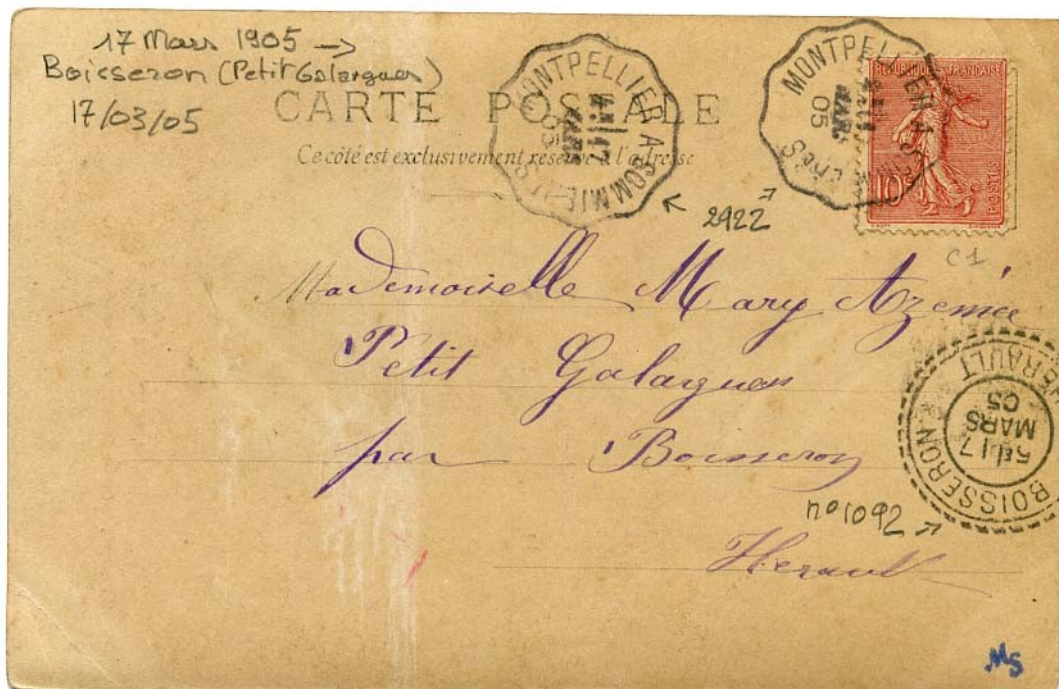 17 Mars 1905 →
Boisseron (Petit Galargues)
17/03/05
CARTE POSTALE
Ce côté est exclusivement réservé à l'adresse
MONTPELLIER A SOMMIERES
17
MARS
05
MONTPELLIER A SOMMIERES
MARS
05
REPUBLIQUE FRANÇAISE
10c
POSTES
← 2922 →
C1
Mademoiselle Mary Azemie
Petit Galargues
par Boisseron
Herault
BOISSERON HERAULT
5E 17
MARS
05
n° 1092 →
MS